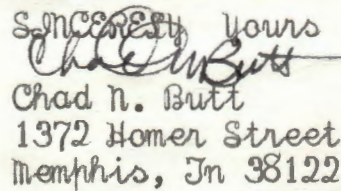 SINCERELY yours
Chad N Butt
Chad N. Butt
1372 Homer Street
Memphis, Tn 38122